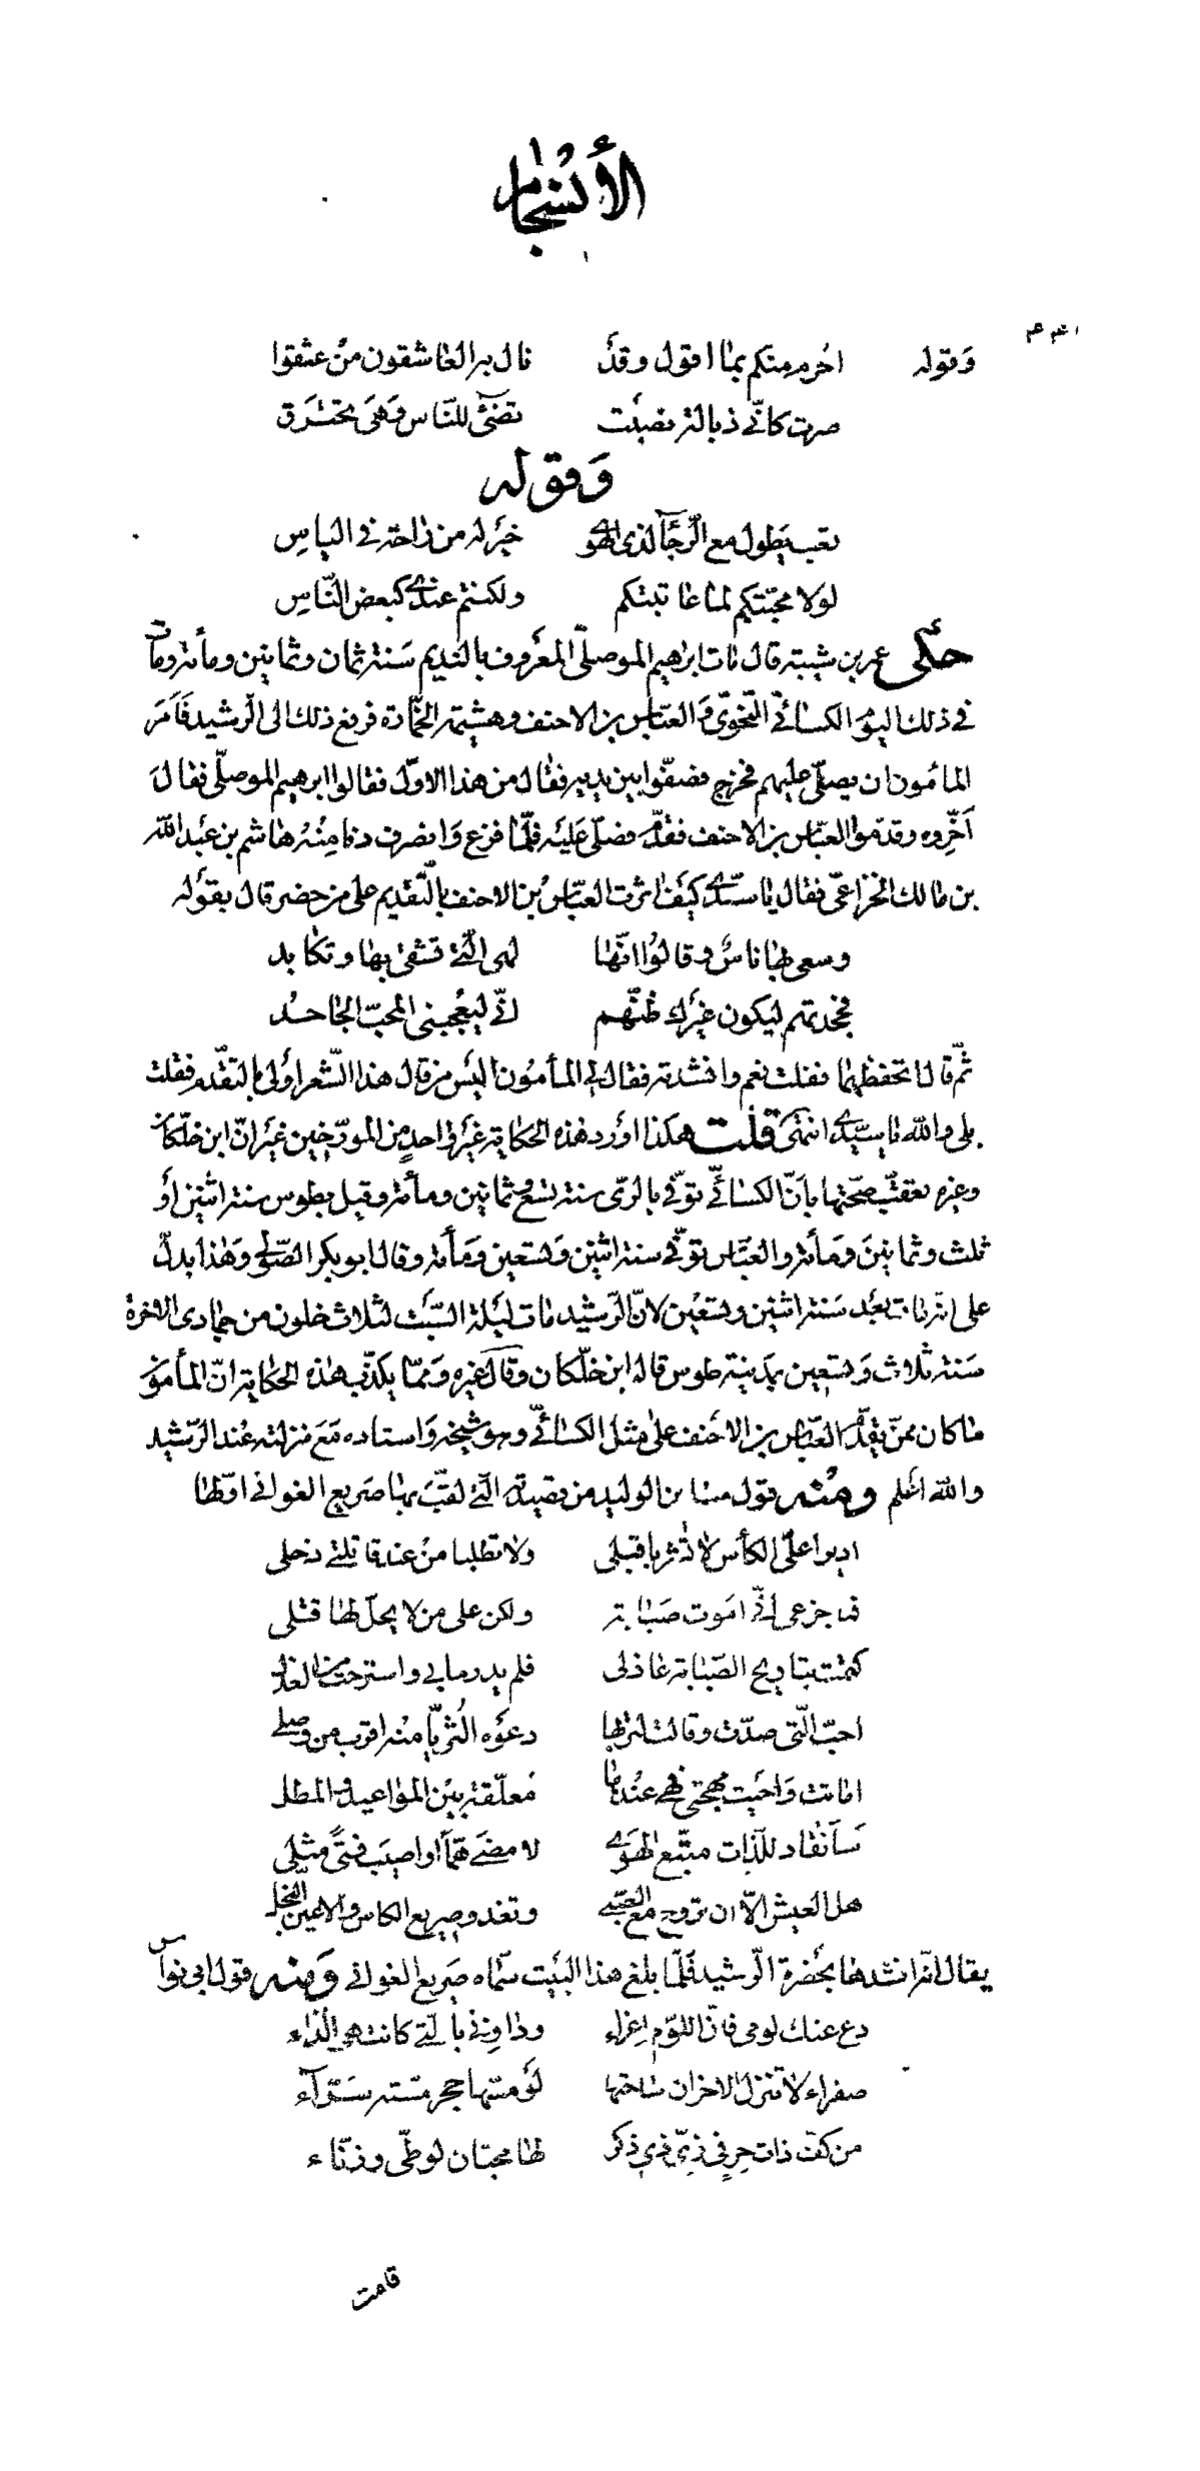 الأنسجام
٤٤١
وَقوله احرم منكم بما اقول وقد نال به العاشقون من عشقوا
صرت كانّي ذبالة نصبت تضئ للنّاس وهي تحترق
وَقوله
تعب يطول مع الرّجآ لذي الهوى خير له من راحة في الياس
لولا محبّتكم لما عاتبتكم ولكنتم عندي كبعض النّاس
حكى عمر بن شيبة قال مات ابراهيم الموصلّي المعروف بالنديم سنة ثمان وثمانين ومأة ومات
في ذلك اليوم الكسائيّ النّحويّ والعبّاس بن الاحنف وهشيمة الخمّارة فرفع ذلك الى الرّشيد فَاَمَرَ
المأمون ان يصلّي عليهم فخرج فصفّوا بين يديه فقال من هذا الاوّل فقالوا ابرهيم الموصلّي فقال
اَخّروه وقدّموا العبّاس بن الاحنف فقدّم فصلّى عَليَه فلمّا فرغ وَانصرف دنا مِنْهُ هاشم بن عبد الله
بن مالك الخزاعيّ فقال يا سيّدي كيف اثرت العبّاس بن الاحنف بالتّقديم على من حضر قال بقوله
وسعى بها ناسٌ وقالوا انّها لهي الّتي تشقى بها وتكابد
فجحدتهم ليكون غيرك ظنّهم انّي ليعجبني المحبّ الجاحد
ثمّ قال اتحفظهما فقلت نعم وانشدته فقال لي المأمون اليس من قال هذا الشّعر اولى بالتقدّم فقلت
بلى والله يا سيّدي انتهى قلت هكذا اورد هذه الحكاية غير واحدٍ من المورّخين غير انّ ابن خلّكان
وغيره تعقّب صحّتها بانّ الكسائيّ توفّي بالرّي سنة تسع وثمانين ومأة وقيل بطوس سنة اثنين او
ثلث وثمانين ومأة والعبّاس توفّي سنة اثنين وتسعين ومأة وقال ابو بكر الصّولي وهذا يدلّ
على انّه مات بعد سنة اثنين وتسعين لانّ الرّشيد مات ليلة السّبت لثلاث خلون من جمادى الاخرة
سنة ثلاث وتسعين بمدينة طوس قاله ابن خلّكان وقال غيره وممّا يكذّب هذه الحكاية انّ المأمون
ما كان ممّن يقدّم العبّاس بن الاحنف على مثل الكسائيّ وهو شيخه واستاده مع منزلته عند الرّشيد
والله اعلم ومنه قول مسلم بن الوليد من قصيدته الّتي لقّب بها صريع الغواني اوّلها
اديرا علىّ الكأس لا تشربا قبلي ولا تطلبا من عند قاتلتي ذحلي
فما جزعي انّي اموت صبابة ولكن على من لا يحلّ لها قتلي
كتمت تباريح الصّبابة عاذلي فلم يدر ما بي واسترحت من العذل
احبّ الّتي صدّت وقالت لتربها دعوه الثريّا منه اقرب من وصلي
اماتت واحيت مهجتي فهي عندها معلّقة بين المواعيد والمطل
سأنقاد للّذات متّبع الهوى لامضي همّا او اصيب فتىً مثلي
هل العيش الاّ ان تروح مع الصّبي وتغدو صريع الكاس والاعين النّجل
يقال انّه انشدها بحضرة الرّشيد فلمّا بلغ هذا البيت سمّاه صريع الغواني ومنه قول ابي نواس
دع عنك لومي فانّ اللوم اغراء وداوني بالّتي كانت هي الدّاء
صفراء لا تنزل الاحزان ساحتها لو مسّها حجر مسّته سرّآء
من كفّ ذات حرٍ في زيّ ذي ذكر لها محبّان لوطّي وزنّاء
قامت